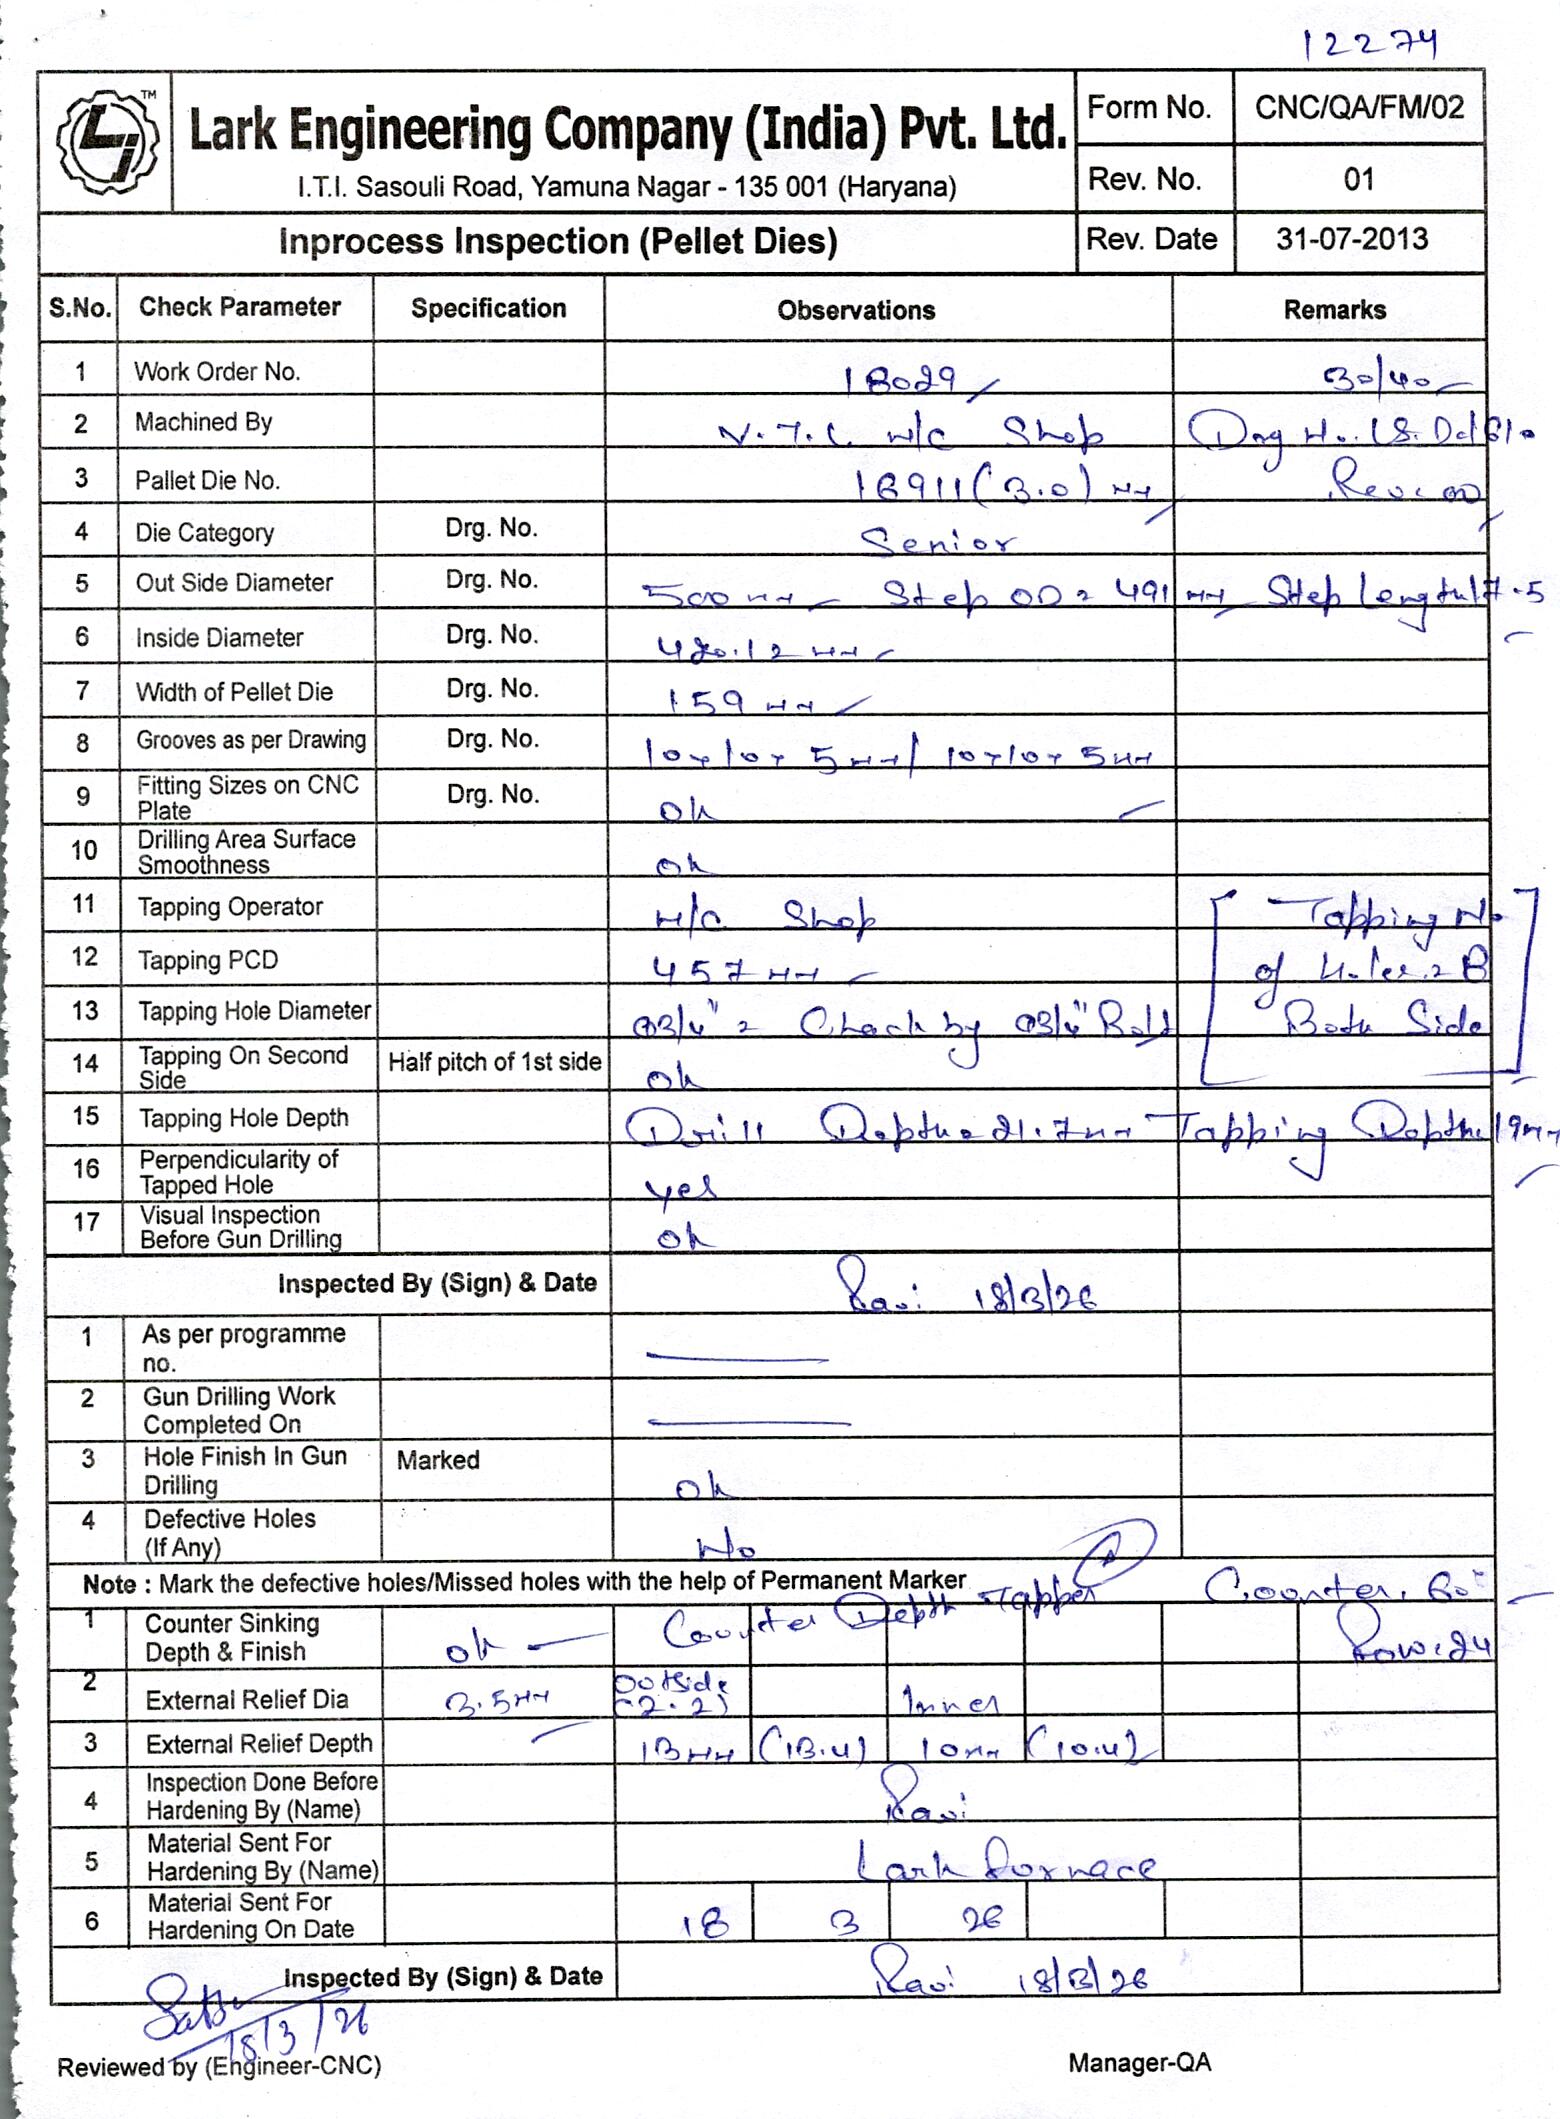 12274
TM
Lark Engineering Company (India) Pvt. Ltd.
I.T.I. Sasouli Road, Yamuna Nagar - 135 001 (Haryana)
Form No. CNC/QA/FM/02
Rev. No. 01
Inprocess Inspection (Pellet Dies)
Rev. Date 31-07-2013
S.No. Check Parameter Specification Observations Remarks
1 Work Order No. 18029 30/40
2 Machined By M/C Shop
3 Pallet Die No. 16911 (3.0) mm Rev: 00
4 Die Category Drg. No. Senior
5 Out Side Diameter Drg. No. 500 mm Step OD = 491 mm Step Length 17.5
6 Inside Diameter Drg. No. 420.12 mm
7 Width of Pellet Die Drg. No. 159 mm
8 Grooves as per Drawing Drg. No. 10x10x5mm/10x10x5mm
9 Fitting Sizes on CNC Plate Drg. No. Ok
10 Drilling Area Surface Smoothness Ok
11 Tapping Operator M/C Shop Tapping No
12 Tapping PCD 457 mm of Holes = 8
13 Tapping Hole Diameter Ø3/4" = Check by Ø3/4" Bolt Both Side
14 Tapping On Second Side Half pitch of 1st side Ok
15 Tapping Hole Depth Drill Depth = 21.7mm Tapping Depth = 19mm
16 Perpendicularity of Tapped Hole Yes
17 Visual Inspection Before Gun Drilling Ok
Inspected By (Sign) & Date Ravi 18/3/26
1 As per programme no.
2 Gun Drilling Work Completed On
3 Hole Finish In Gun Drilling Marked Ok
4 Defective Holes (If Any) No
Note : Mark the defective holes/Missed holes with the help of Permanent Marker
Counter 60°
1 Counter Sinking Depth & Finish Ok Counter Depth Tapper Row: 24
2 External Relief Dia 3.5mm Outside (2.2) Inner
3 External Relief Depth 13mm (13.4) 10mm (10.4)
4 Inspection Done Before Hardening By (Name) Ravi
5 Material Sent For Hardening By (Name) Lark Furnace
6 Material Sent For Hardening On Date 18 3 26
Inspected By (Sign) & Date Ravi 18/3/26
18/3/26
Reviewed by (Engineer-CNC) Manager-QA